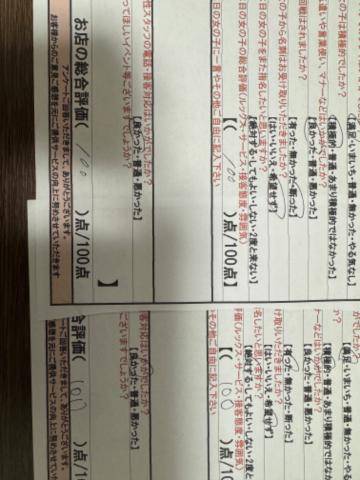 満足・いまいち・普通・無かった・やる気なし】
の子は積極的でしたか？
【積極的・普通・あまり積極的ではなかった】
違いや言葉遣い、マナーなどはいかがでしたか？
【良かった・普通・悪かった】
回戦はされましたか？
【有った・無かった・断った】
の子から名刺はお受け取りいただきましたか？
【はい・いいえ・希望せず】
日の女の子をまた指名したいと思いますか？
【絶対する・してもよい・しない・2度と来ない】
日の女の子の総合評価(ルックス・サービス・接客態度・雰囲気)
【( 100 )点/100点】
日の女の子に一言やその他ご自由に記入下さい
性スタッフの電話・接客対応はいかがでしたか？
【良かった・普通・悪かった】
ってほしいイベント等ございますでしょうか？
】
お店の総合評価( 100 )点/100点
アンケートご回答いただきまして、ありがとうございます。
お客様からのご意見ご感想を元にご提供サービスの向上に努めさせていただきます
満足・いまいち・普通・無かった・
がでしたか？
【積極的・普通・あまり積極的では
ナーなどはいかがでしたか？
【良かった・普通・悪か
【有った・無かった・断った】
け取りいただきましたか？
【はい・いいえ・希望せず】
名したいと思いますか？
【絶対する・してもよい・しない・2度と
評価(ルックス・サービス・接客態度・雰囲気
( 100 )点/100
やその他ご自由に記入下さい
客対応はいかがでしたか？
【良かった・普通・悪かった】
ございますでしょうか？
合評価( 100 )点/10
ートご回答いただきまして、ありがとうございます。
感想を元にご提供サービスの向上に努めさせていた